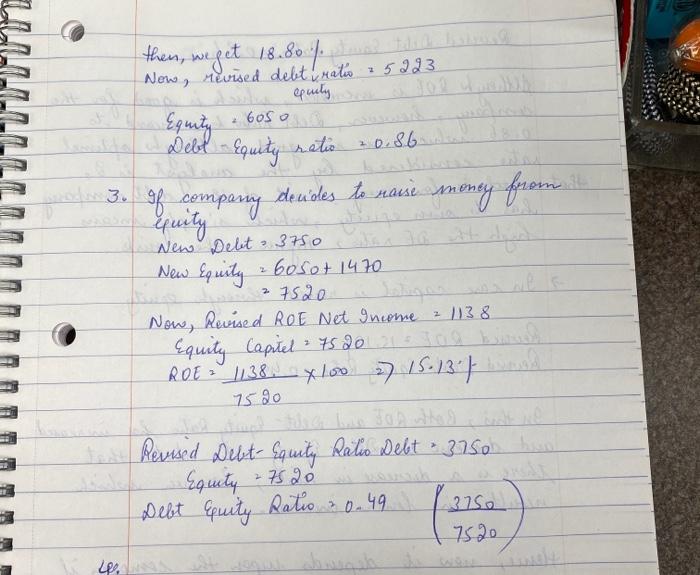 then, we get 18.80 %.
Now, revised debt equity ratio = 5223
Equity = 6050
Debt Equity ratio = 0.86
3. If company decides to raise money from
equity
New Debt = 3750
New Equity = 6050 + 1470
= 7520
Now, Revised ROE Net Income = 1138
Equity Capital = 7520
ROE = 1138 / 7520 × 100 => 15.13 %
Revised Debt-Equity Ratio Debt = 3750
Equity = 7520
Debt Equity Ratio = 0.49 (3750 / 7520)